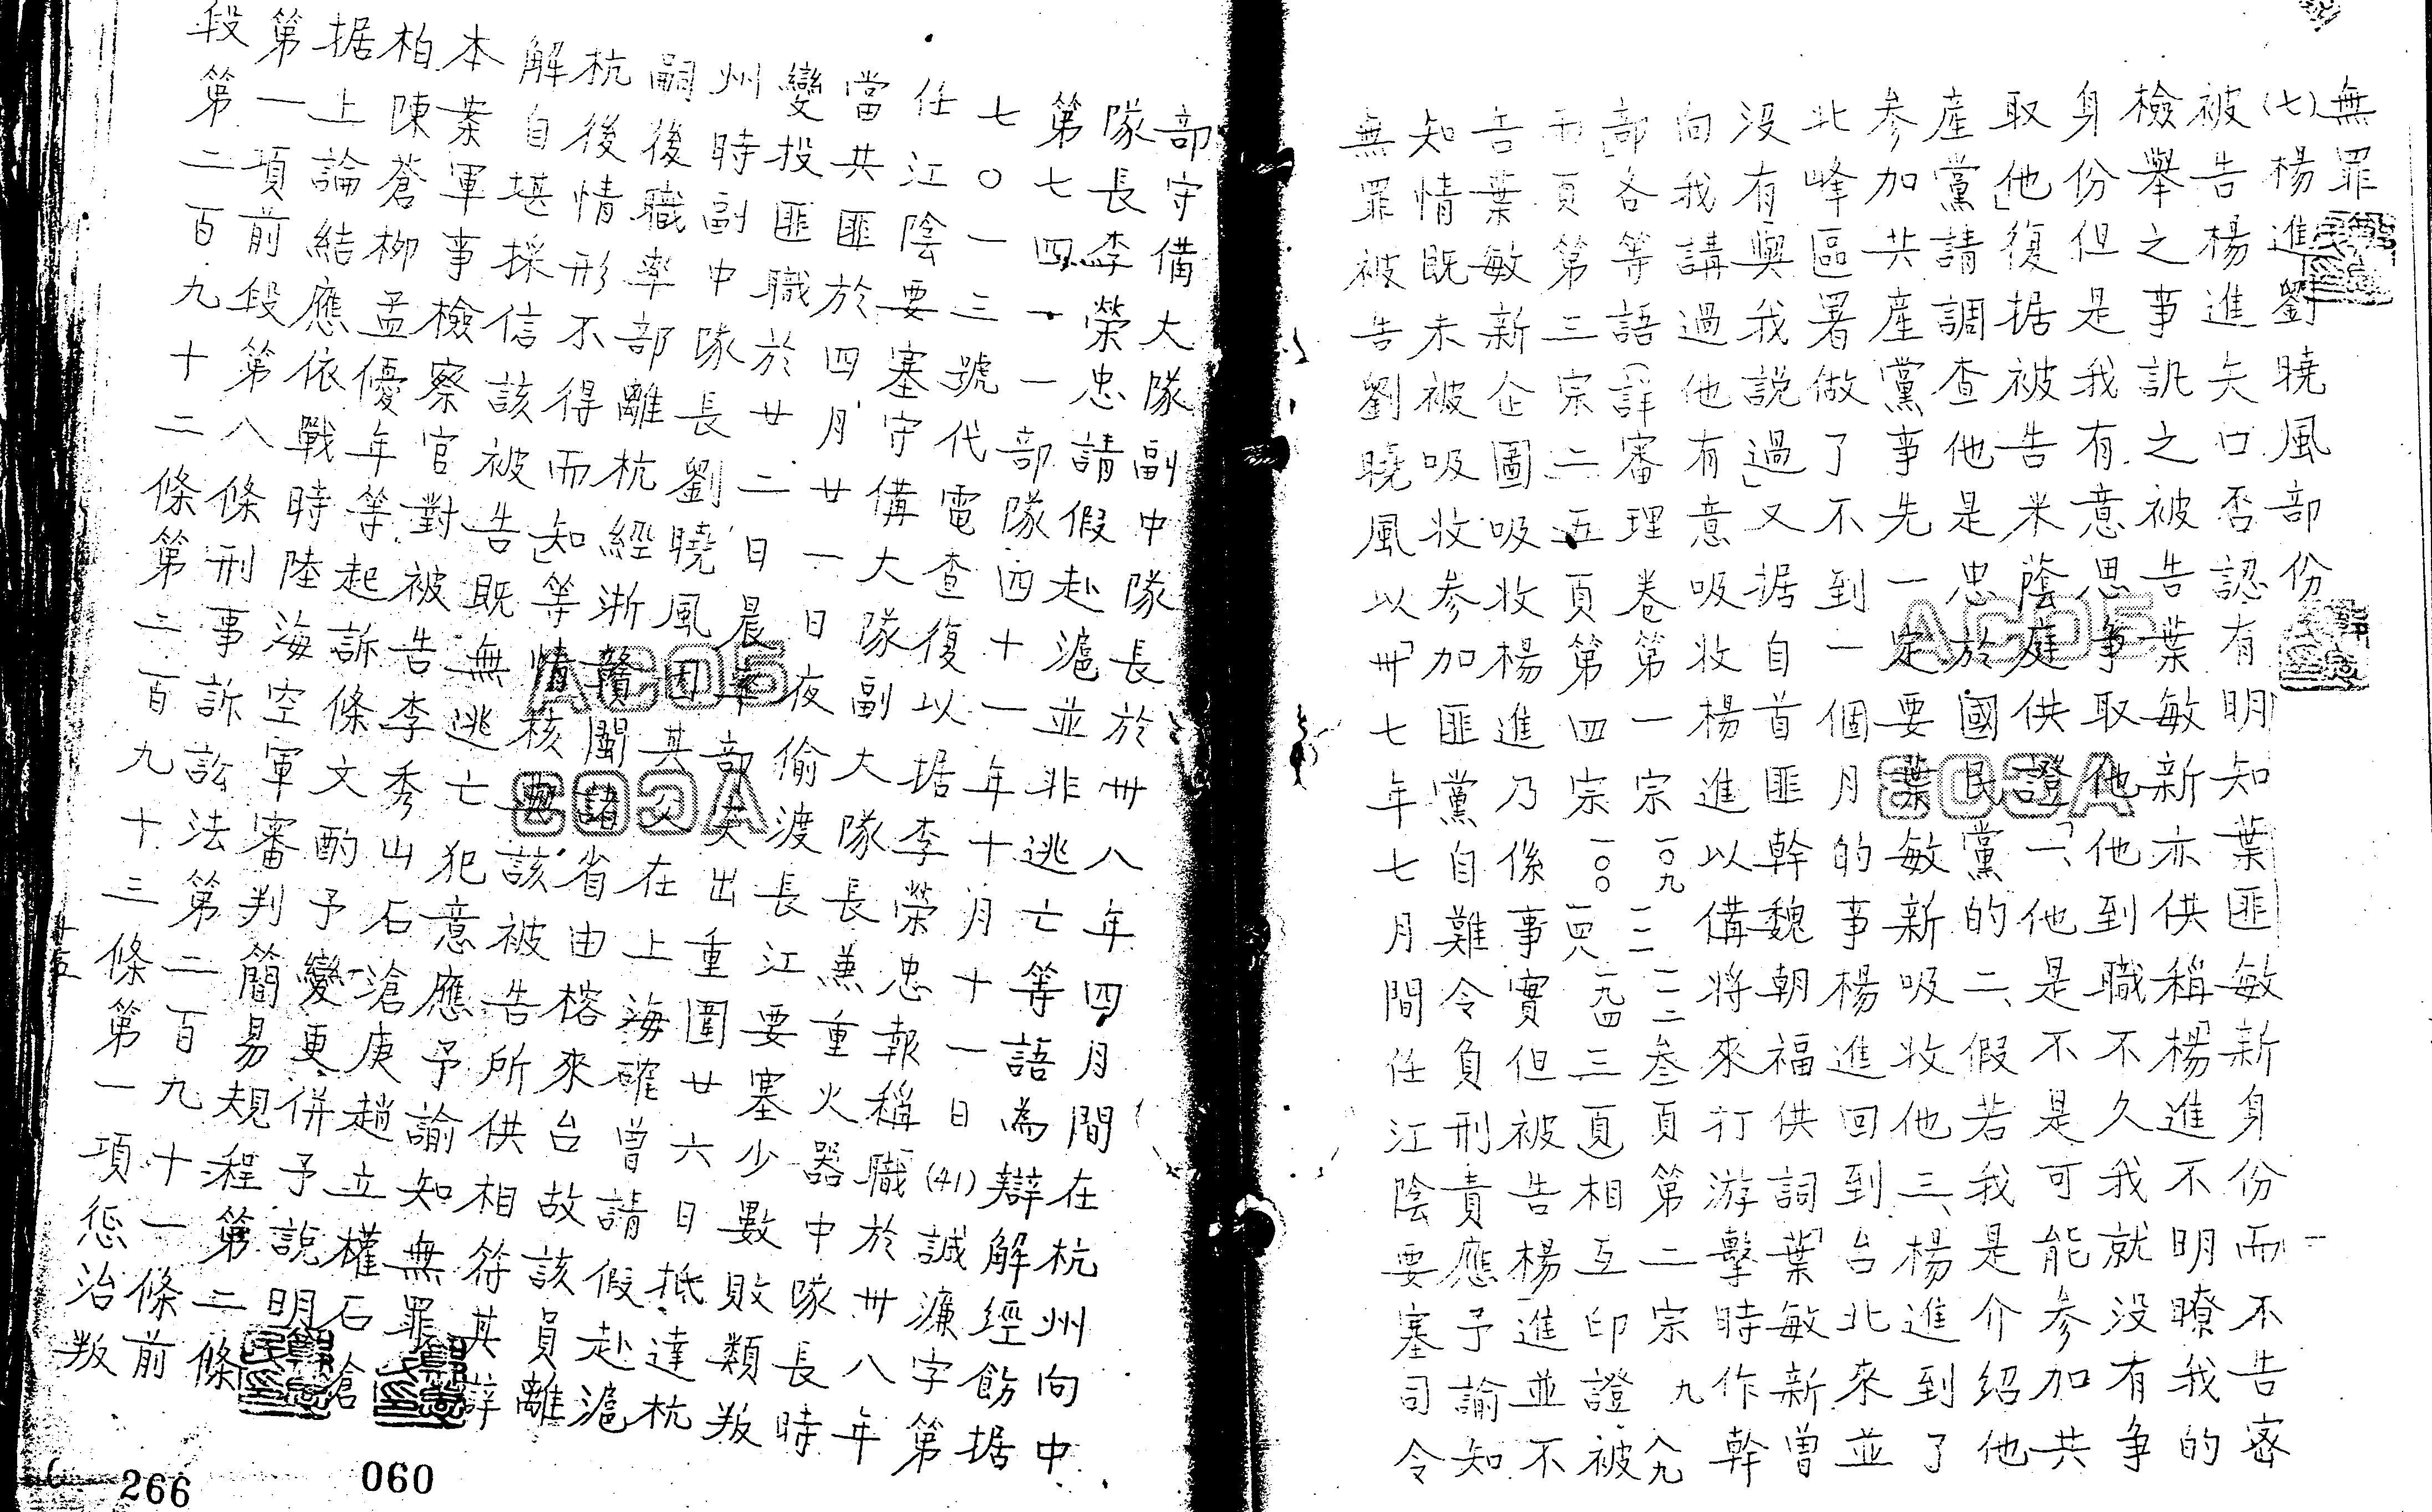 無罪
(七)楊進劉曉風部份
被告楊進矢口否認有明知葉匪敏新身份而不告密
檢舉之事訊之被告葉敏新亦供稱「楊進不明瞭我的
身份但是我有意思爭取他他到職不久我就没有争
取他」復据被告米蔭庭供證「一、他是不是可能参加共
產黨請調查他是忠於國民黨的二、假若我是介紹他
参加共産黨事先一定要葉敏新吸收他三、楊進到了
北峰區署做了不到一個月的事楊進回到台北來並
没有與我說過」又据自首匪幹魏朝福供詞「葉敏新曾
向我講過他有意吸收楊進以備將來打游擊時作幹
部」各等語(詳審理卷第一宗一〇九一一二一一二叁頁第二宗九八九
兩頁第三宗二五頁第四宗一〇〇一四一九四三頁相互印證被
告葉敏新企圖吸收楊進乃係事實但被告楊進並不
知情既未被吸收参加匪黨自難令負刑責應予諭知
無罪被告劉曉風以「卅七年七月間任江陰要塞司令
部守備大隊副中隊長於卅八年四月間在杭州向中
隊長李榮忠請假赴滬並非逃亡等語為辯解經飭据
第七四一一部隊四十一年十月十一日(41)誠濂字第
七〇一三號代電查復以据李榮忠報稱職於卅八年
任江陰要塞守備大隊副大隊長兼重火器中隊長時
當共匪於四月廿一日夜偷渡長江要塞少數敗類叛
變投匪職於廿二日晨率部突出重圍廿六日抵達杭
州時副中隊長劉曉風因其父在上海確曾請假赴滬
嗣後職率部離杭經浙贛閩諸省由榕來台故該員離
杭後情形不得而知」等情核與該被告所供相符其辯
解自堪採信該被告既無逃亡犯意應予諭知無罪
本案軍事檢察官對被告李秀山石滄庚趙立權石滄
柏陳蒼柳孟優年等起訴條文酌予變更併予說明
据上論結應依戰時陸海空軍審判簡易規程第二條
第一項前段第八條刑事訴訟法第二百九十一條前
段第二百九十二條第二百九十三條第一項懲治叛
266
060